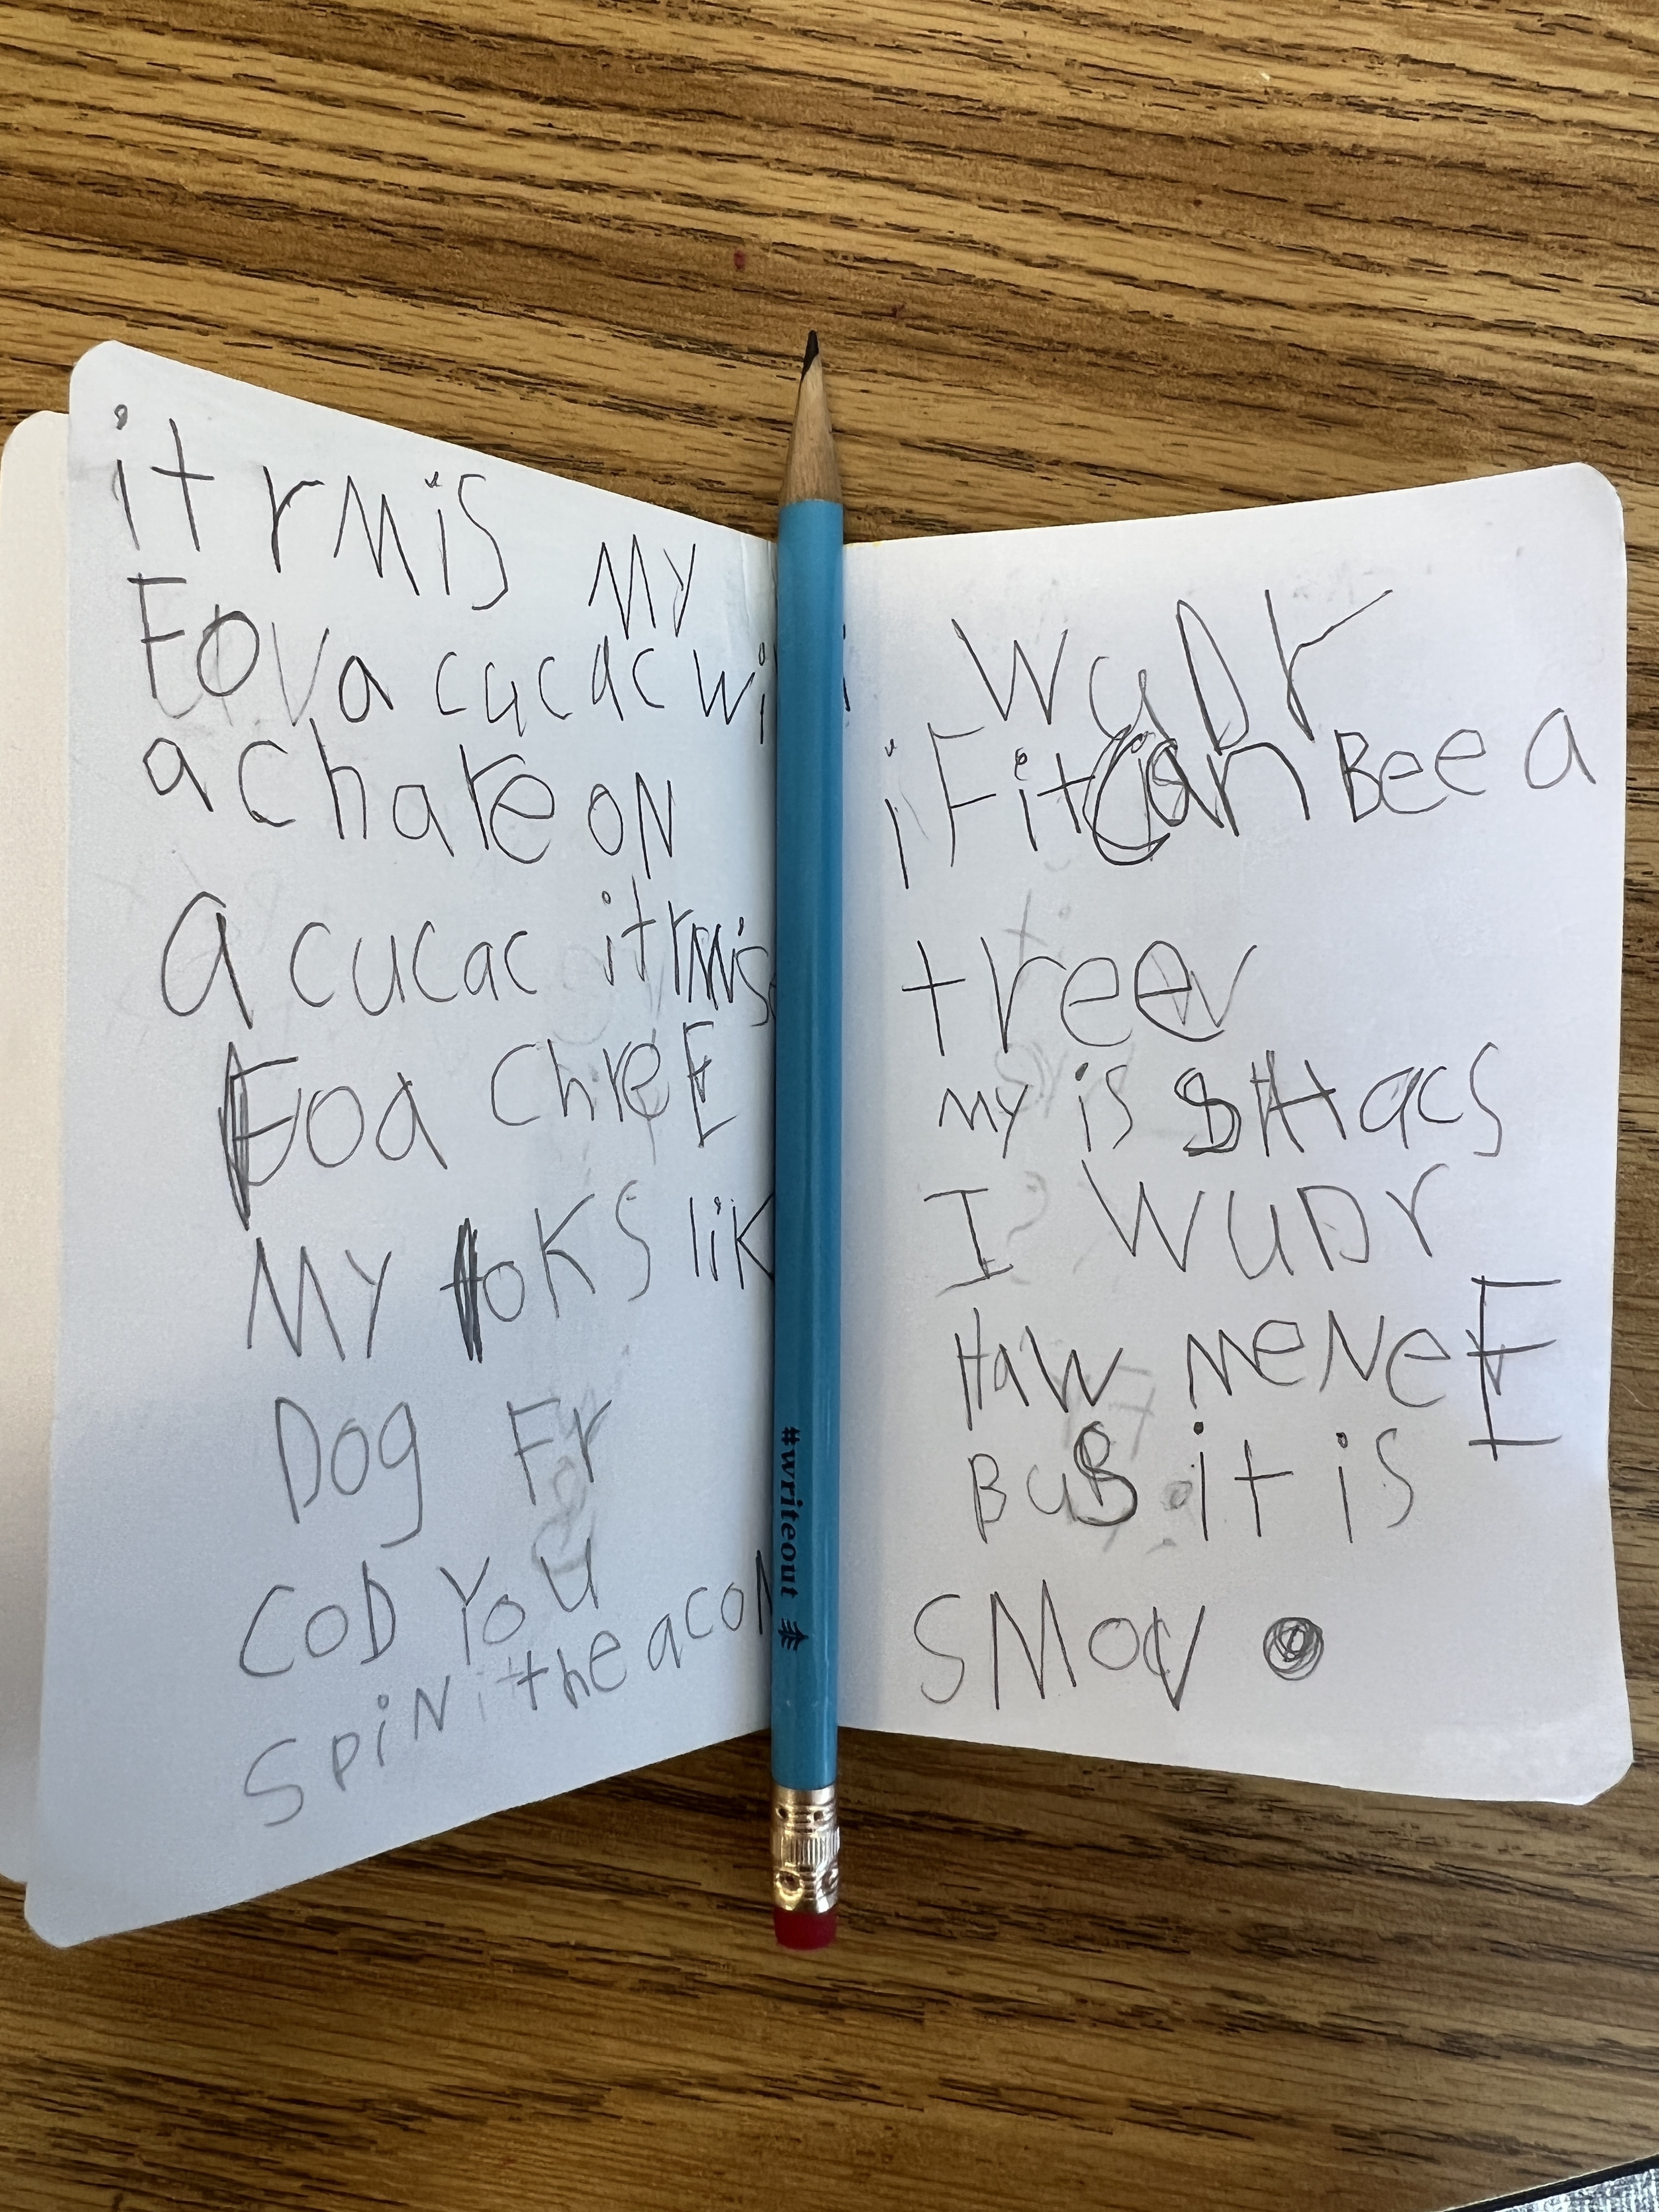 it rmis my
Fova cucac wi
a chare oN
a cucac it rmis
Foa chreE
MY loKS lik
Dog Fr
CoD You
SpiN the acoN
i wuDr
iF it can Bee a
tree
my is SHtacS
I WuDr
HaW MeNeE
BuS it is
SMoV
#writeout